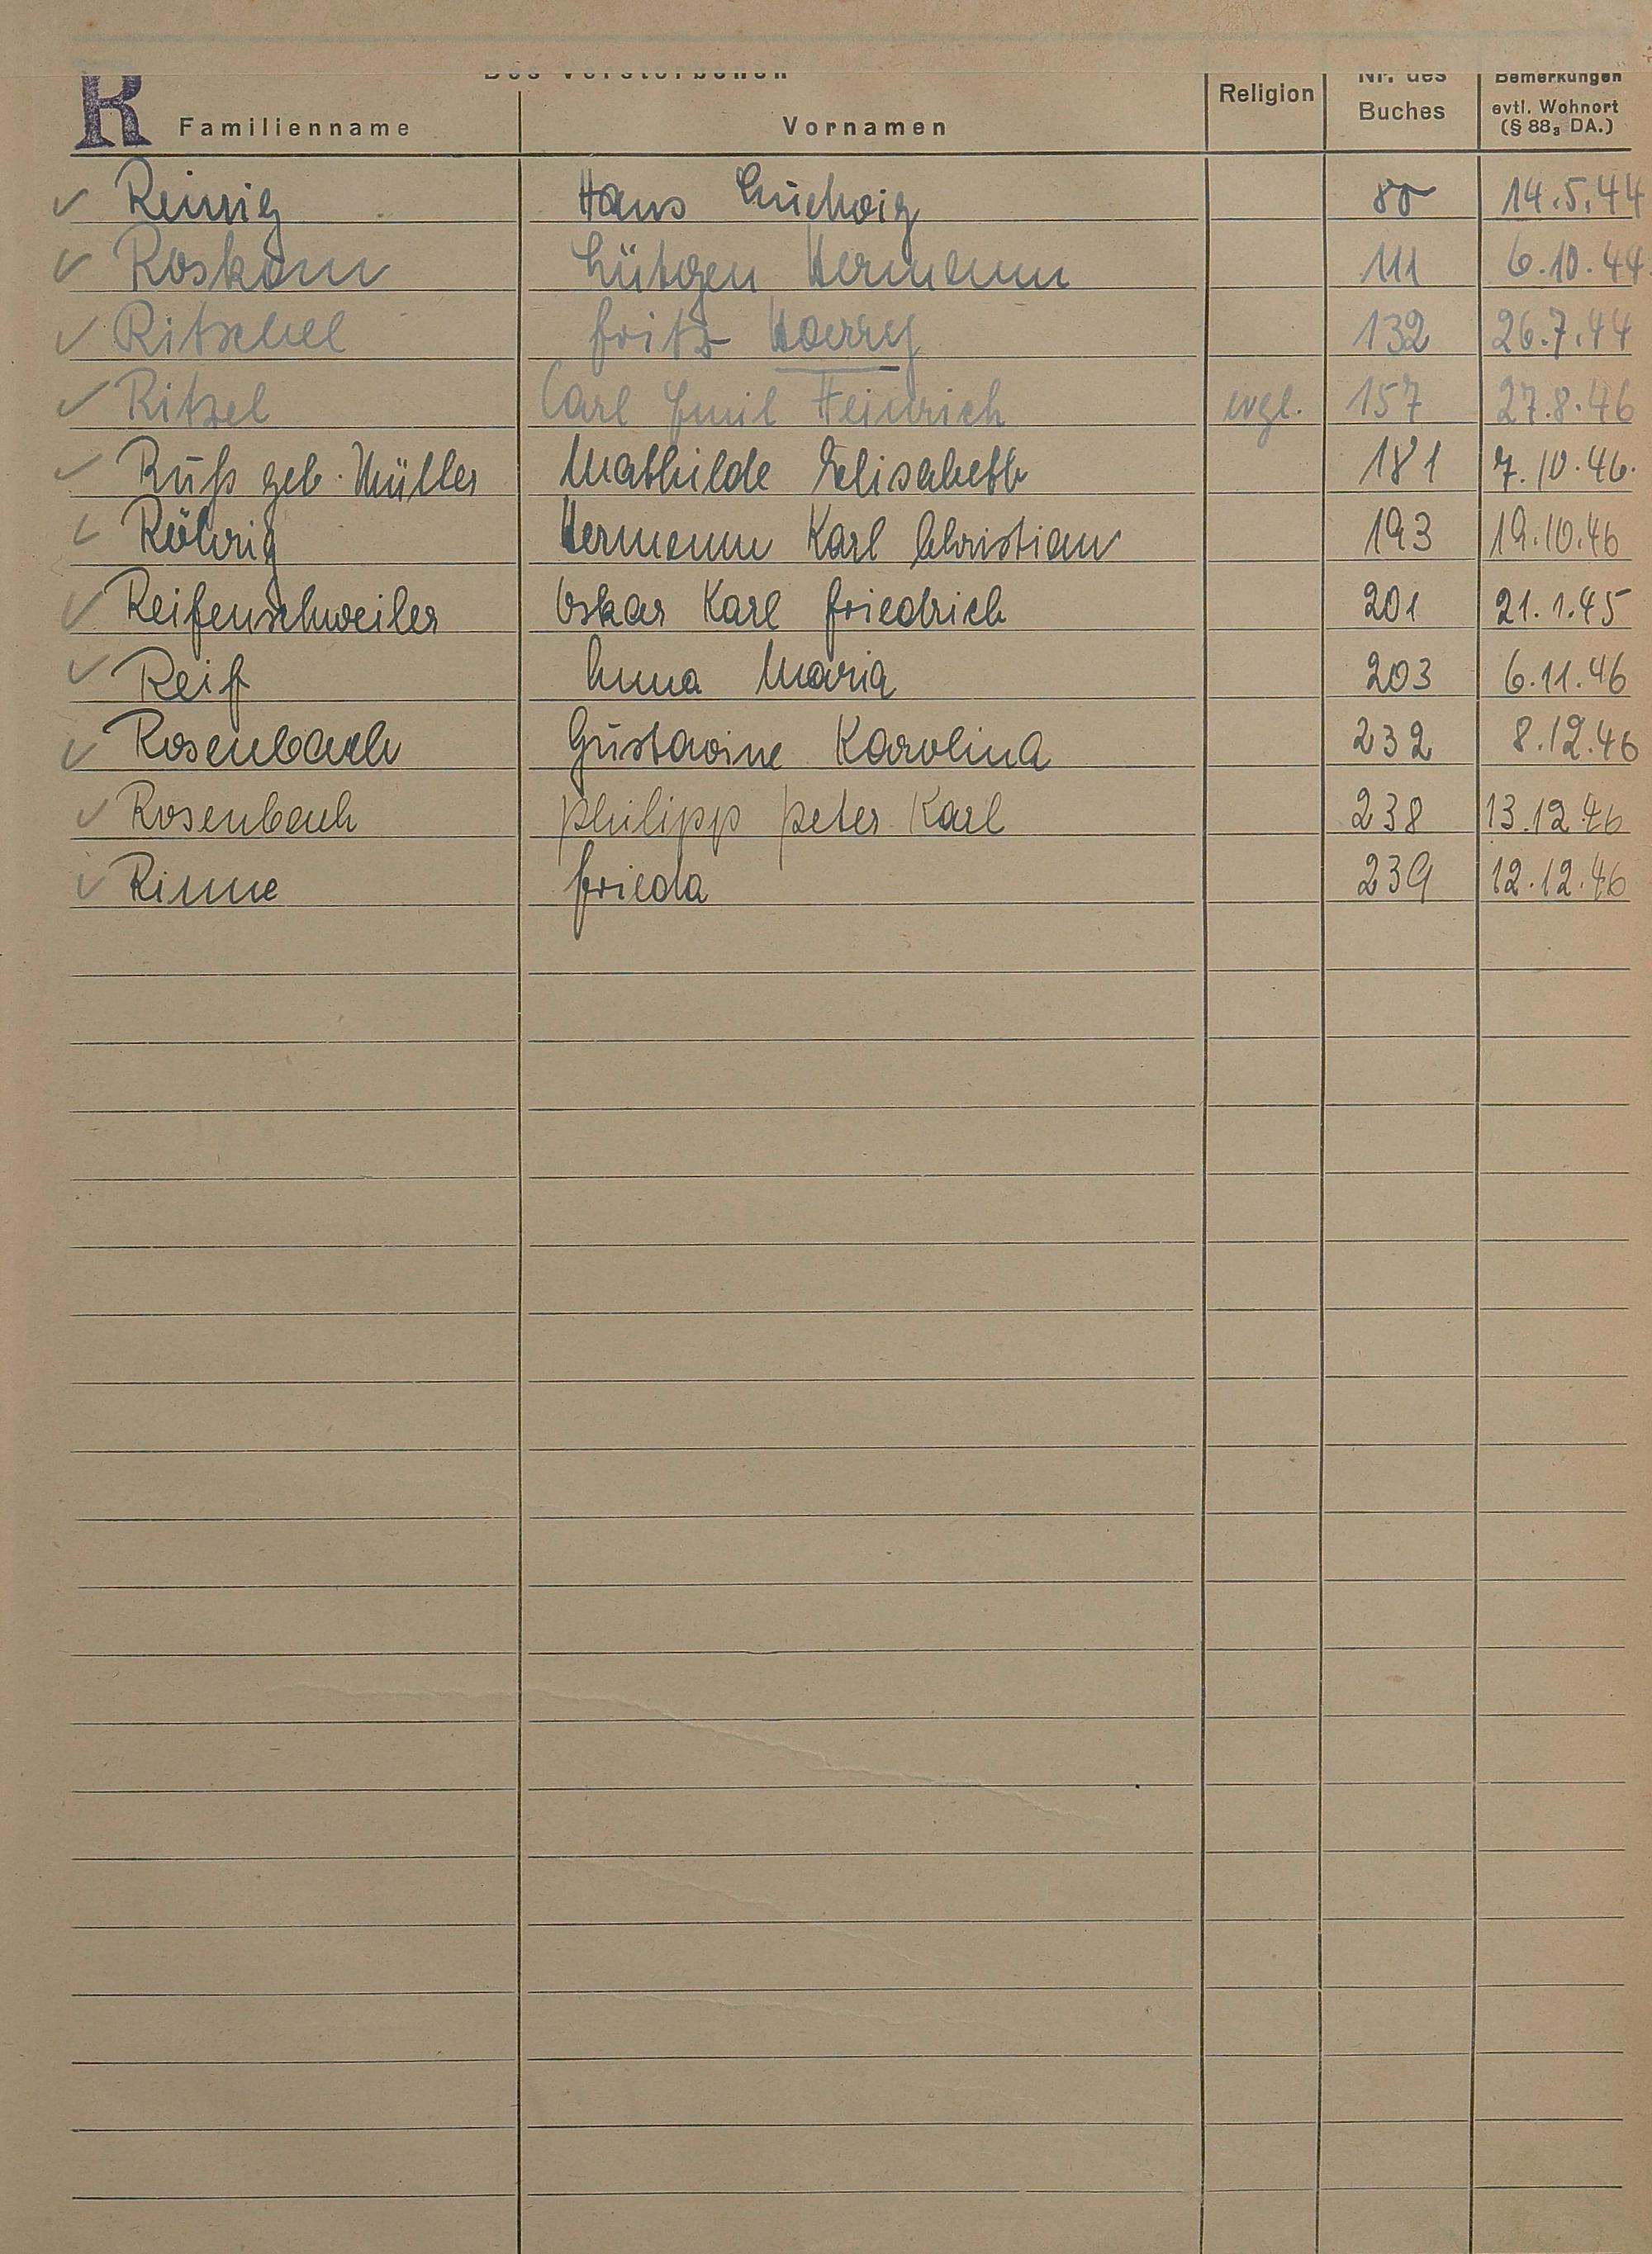 R
Des Verstorbenen
Familienname Vornamen Religion Nr. des Buches Bemerkungen evtl. Wohnort (§ 88₃ DA.)
✓ Reinig Hans Ludwig 80 14.5.44
✓ Roskam Lütgen Hermann 111 6.10.44
✓ Ritschel Fritz Harry 132 26.7.44
✓ Ritzel Carl Emil Heinrich evgl. 157 27.8.46
✓ Ruß geb. Müller Mathilde Elisabeth 181 7.10.46.
✓ Röhrig Hermann Karl Christian 193 19.10.46
✓ Reifenschweiler Oskar Karl Friedrich 201 21.1.45
✓ Reif Anna Maria 203 6.11.46
✓ Rosenbach Gustavine Karolina 232 8.12.46
✓ Rosenbach Philipp Peter Karl 238 13.12.46
✓ Rinne Frieda 239 12.12.46